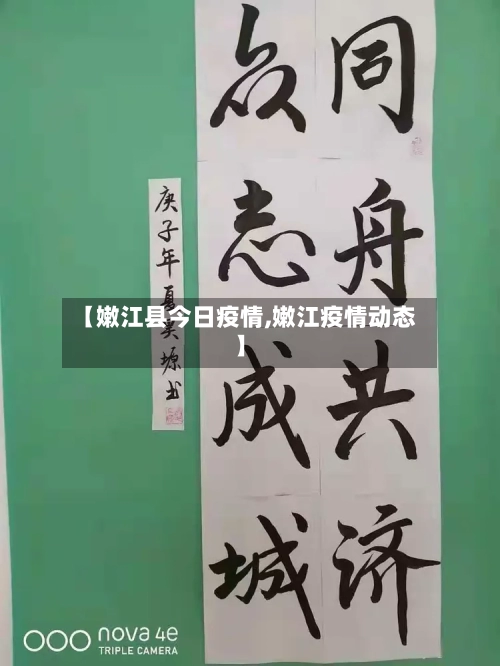 同舟共济
众志成城
庚子年夏吴塬书
【嫩江县今日疫情,嫩江疫情动态
】
nova 4e
TRIPLE CAMERA